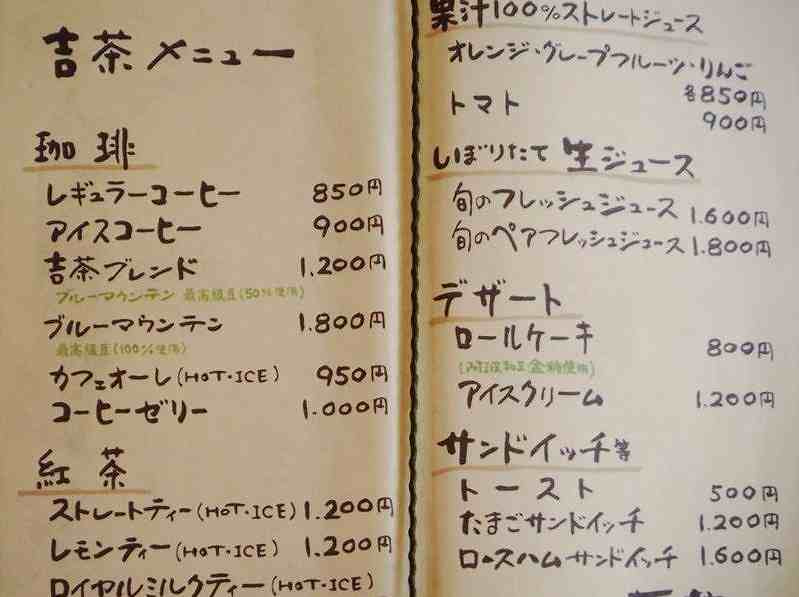 吉茶メニュー
珈琲
レギュラーコーヒー 850円
アイスコーヒー 900円
吉茶ブレンド 1.200円
ブルーマウンテン 最高級豆(50%使用)
ブルーマウンテン 1.800円
最高級豆(100%使用)
カフェオーレ(HOT・ICE) 950円
コーヒーゼリー 1.000円
紅茶
ストレートティー(HOT・ICE) 1.200円
レモンティー(HOT・ICE) 1.200円
ロイヤルミルクティー(HOT・ICE)
果汁100%ストレートジュース
オレンジ・グレープフルーツ・りんご
各850円
トマト 900円
しぼりたて 生ジュース
旬のフレッシュジュース 1.600円
旬のペアフレッシュジュース 1.800円
デザート
ロールケーキ 800円
(阿波和三盆糖使用)
アイスクリーム 1.200円
サンドイッチ等
トースト 500円
たまごサンドイッチ 1.200円
ロースハムサンドイッチ 1.600円